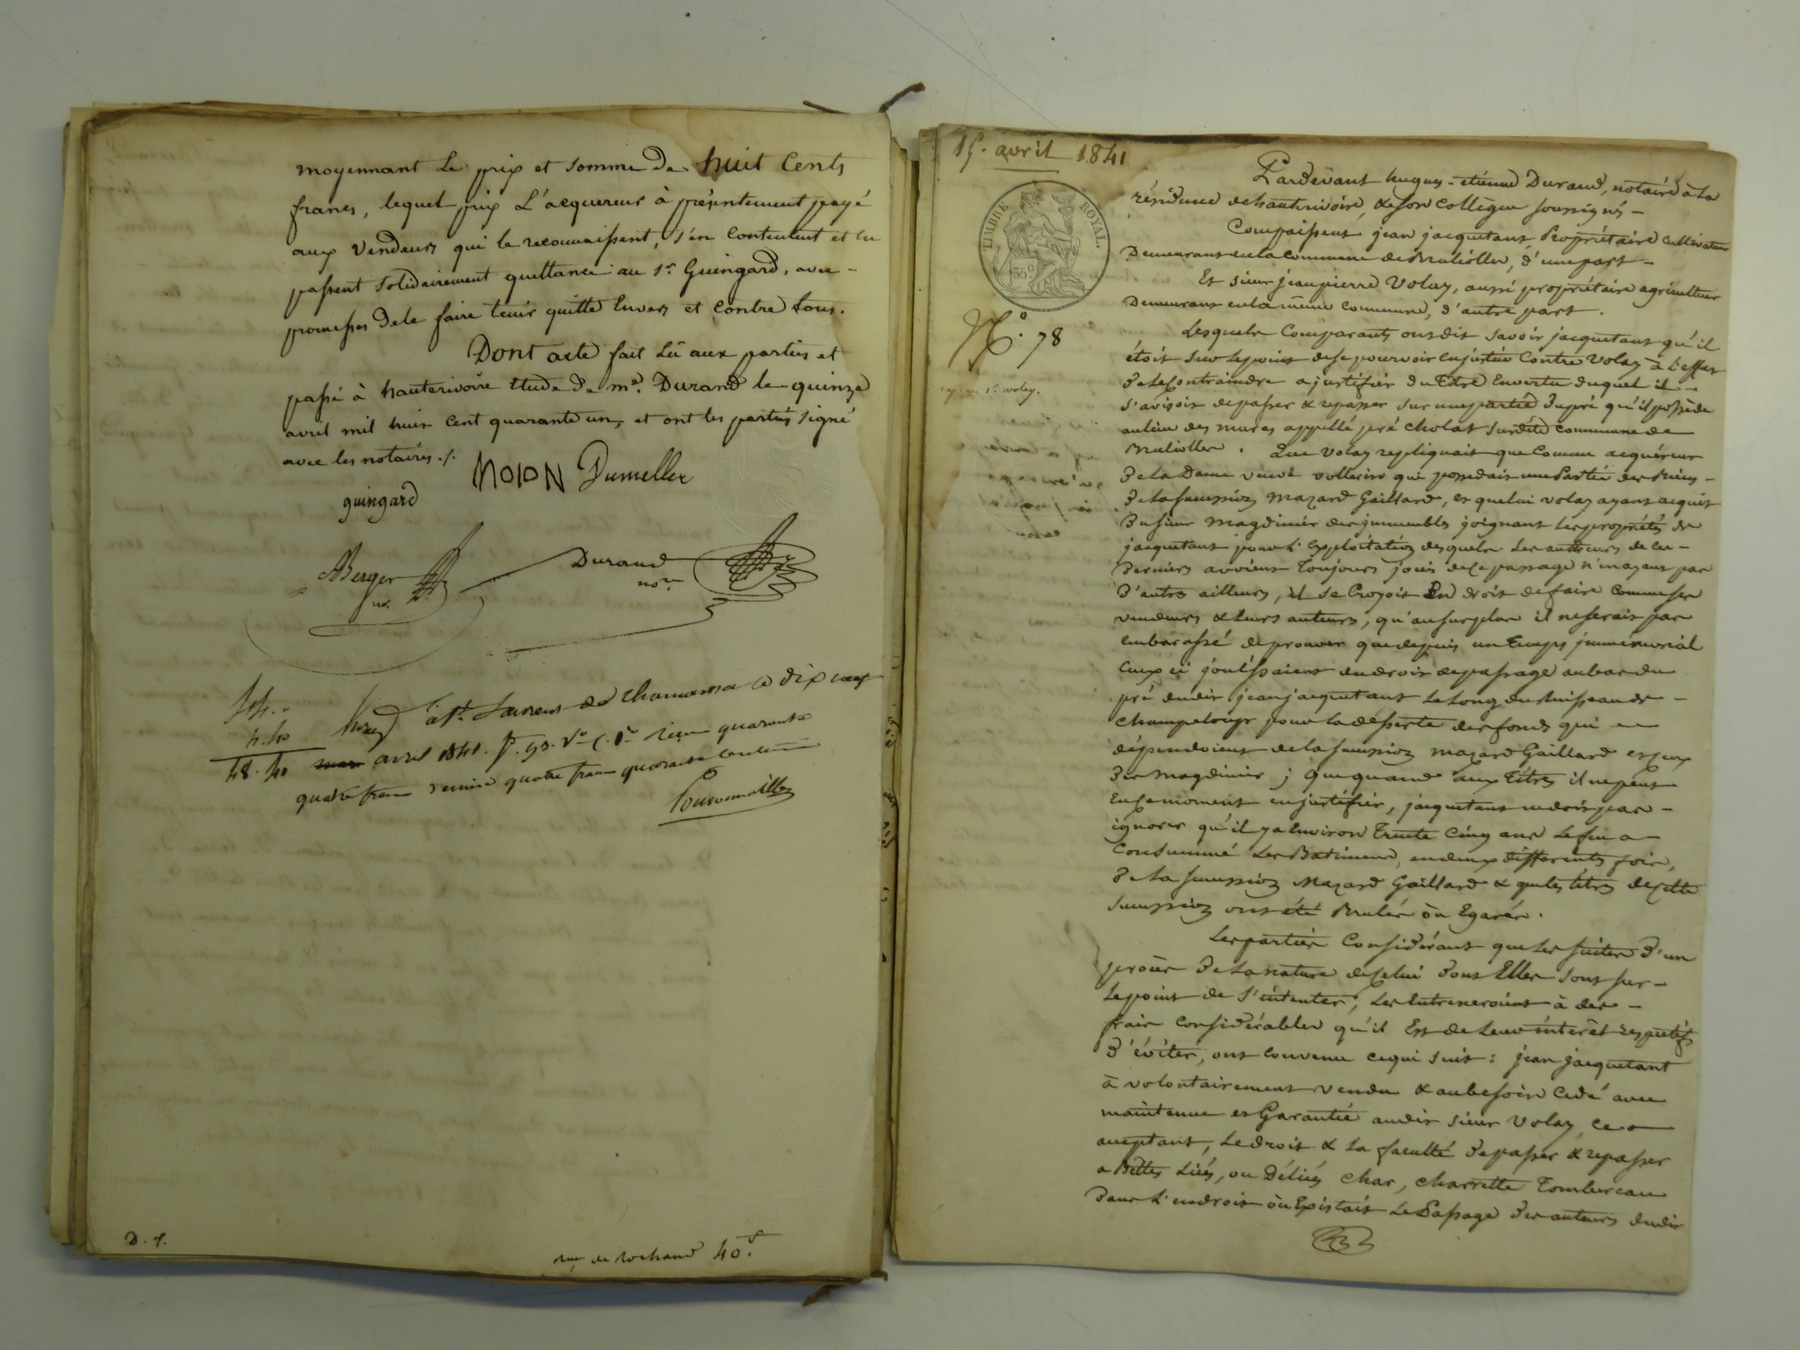 moyennant Le prix et somme De huit Cents
francs, lequel prix L'acquereur à présentement payé
aux Vendeurs qui le reconnaissent, s'en Contentent et lui
passent Solidairement quittance au Sr. Guingard, avec -
promesses de le faire tenir quitte Envers et contre tous.
Dont acte fait Lû aux parties et
passé à hauterivoire Etude De me. Durand le quinze
avril mil huit Cent quarante un, et ont les parties signé
avec les notaires ./.
guingard MOION Dumeller
ABerger Durand
nre
à St. Laurent de Chamousset le dix neuf
4.40
48.40 avril 1841. f. 93. Vo. C. 1re reçu quarante
quatre francs dixième quatre francs quarante centimes
D. f.
40.
15. avril 1841
TIMBRE ROYAL.
35c
Pardevant hugues-étienne Durand, notaire à la
résidence de hauterivoire, & son Collègue soussignés -
Comparissent jean jacquetant Propriétaire Cultivateur
Demeurant en la commune de Brulioller, d'une part -
Et sieur jean pierre Volay, aussi propriétaire agriculteur
Demeurant en la même Commune, d'autre part.
No. 78
Volay.
Lesquels Comparants ont dit savoir jacquetant qu'il
étoit sur le point de se pourvoir en justice Contre Volay à l'effet
de le Contraindre a justifier du titre En vertu duquel il -
s'avisoit de passer & repasser sur une partie du pré qu'il possède
au lieu des mures appellé pré Cholat susdite commune de
Brulioller. Que Volay repliquait que Comme acquéreur
De La Dame veuve volleriro qui possedait une Partie des Biens -
De la succession Mazard Gaillard, et que lui volay ayant acquis
Du sieur Magdinier des immeubles joignant les propriétés de
jacquetant pour l'Exploitation desquels les auteurs de ces -
Derniers avoient Toujours joui de ce passage n'en ayant pas
D'autre ailleurs, il se Croyoit En droit de faire Comme ses
vendeurs & leurs auteurs, qu'au surplus il ne serait pas
Embarassé de prouver que depuis un Temps immémorial
Ceux ci jouissaient du droit de passage au bas du
pré dudit jean jacquetant Le Long du Ruisseau de -
Champelougy pour la désserte des fonds qui
dépendoient de la succession Mazard Gaillard et ceux
Des magdinier ; Que quand aux Titres il ne peut
En ce moment en justifier, jacquetant ne doit pas -
ignorer qu'il y a Environ Trente Cinq ans Le feu a -
Consummé Les Batiments, en deux différents fois,
De La succession Mazard Gaillard & que les titres de cette
succession ont été Brulés où Egarés.
Les parties Considérant que les suites D'un
procès De La nature de Celui dont Elles sont sur -
Le point de s'intenter, Les Entreneroient à des -
frais Considérables qu'il Est de Leur intérêt respectif
D'éviter, ont convenu ce qui suit : jean jacquetant
à volontairement vendu & au besoin Cédé avec
maintenue et Garantie audit sieur Volay, ce
acceptant, Le droit & La faculté de passer & repasser
a Bêttes Liés, ou Déliés Char, Charrette Tombereau
Dans L'endroit où Existait Le Passage des auteurs dudit